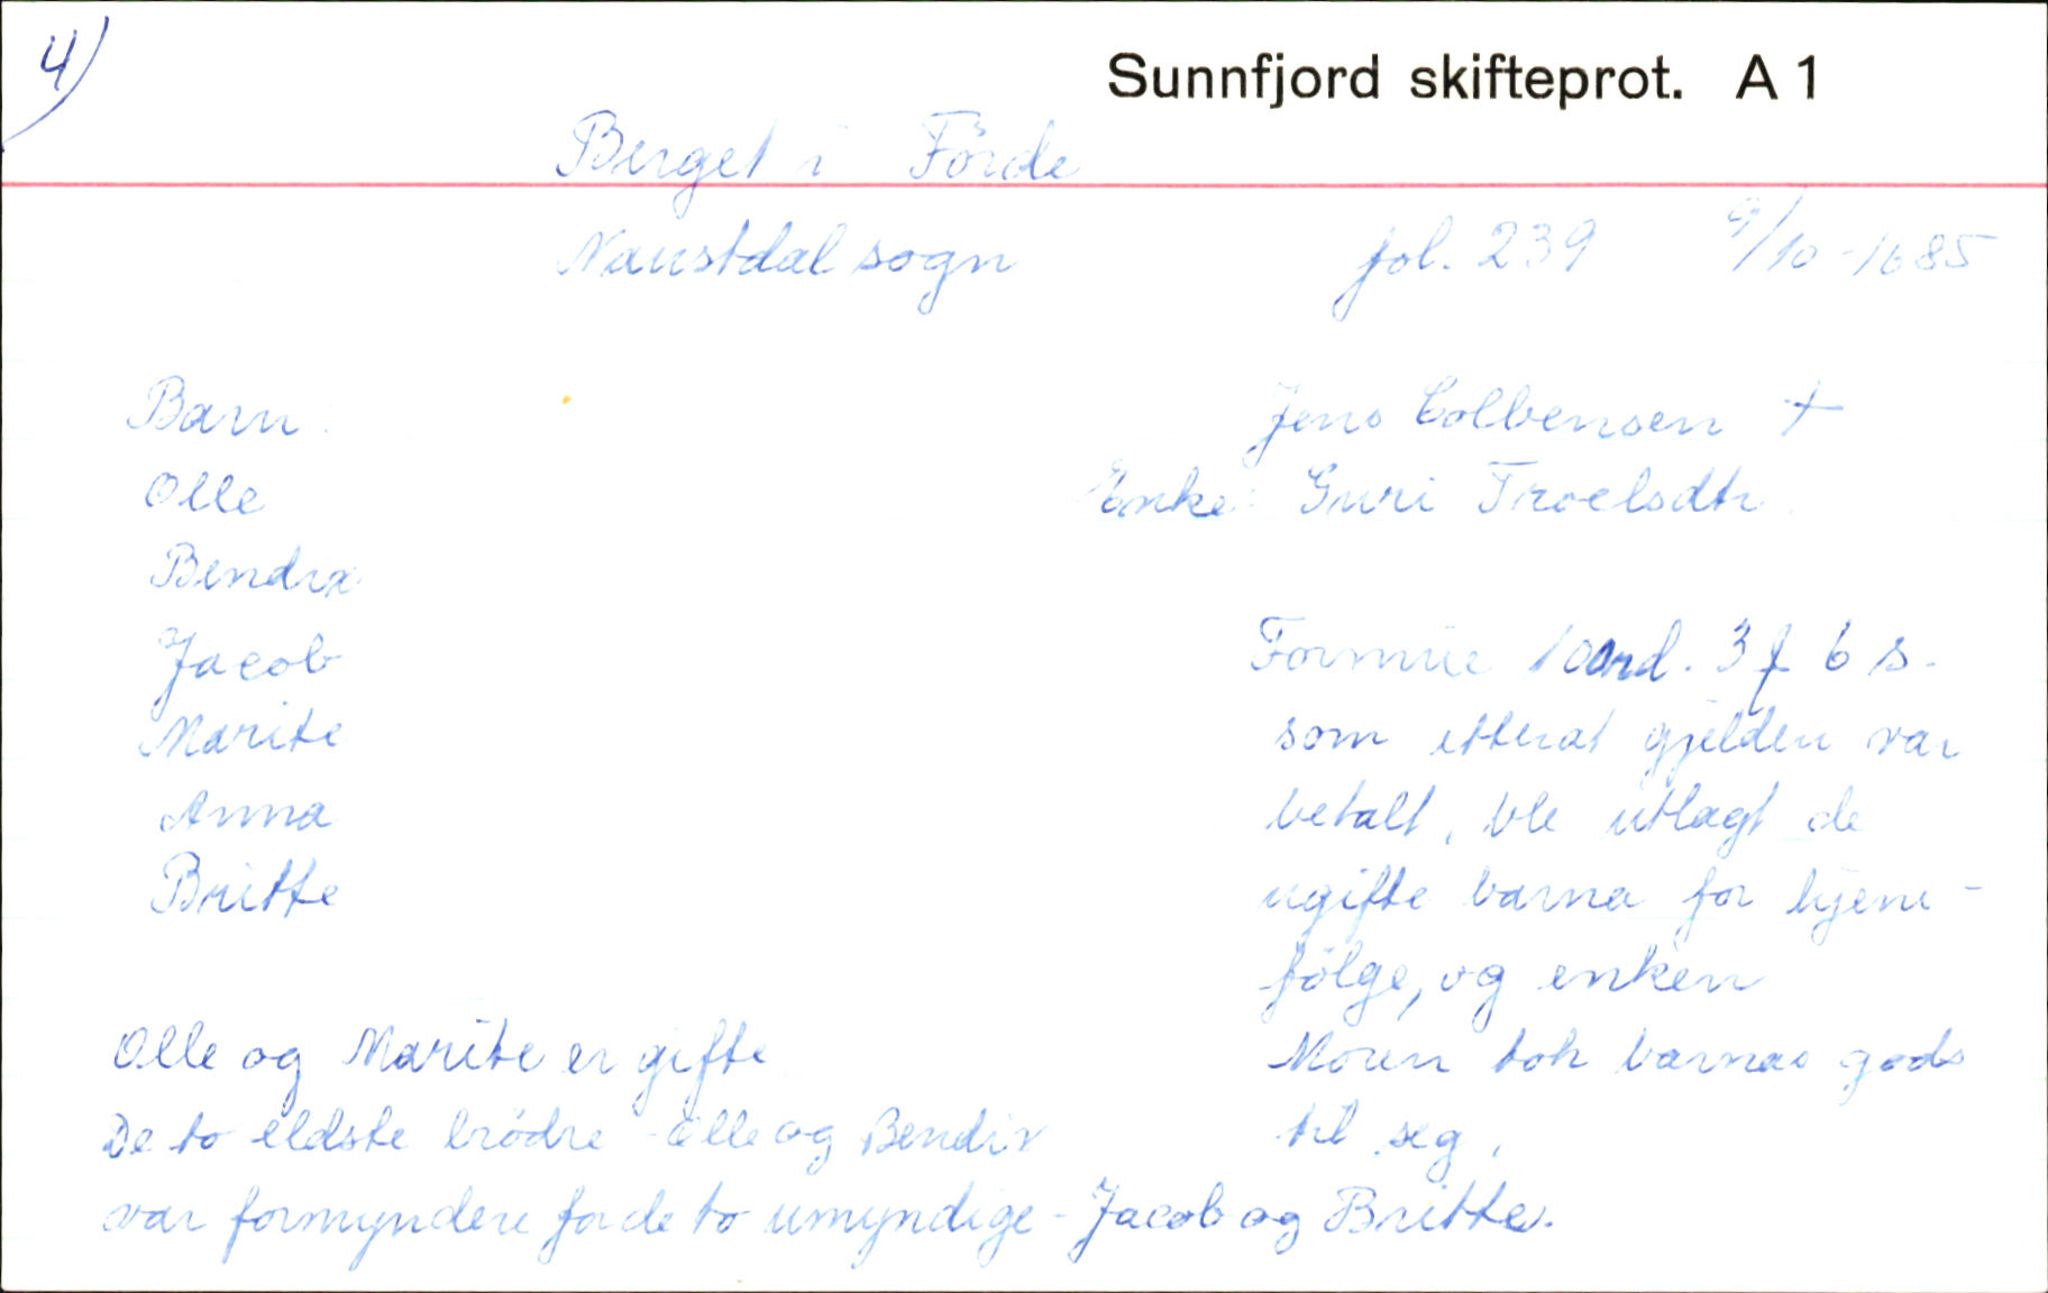 4)
Sunnfjord skifteprot. A 1
Berget i Förde
Naustdal sogn fol. 239 9/10-1685
Barn: Jens Colbensen +
Olle Enke: Guri Troelsdtr.
Bendix
Jacob Formue 100rd. 3 f 6 s.
Marite som etterat gjelden var
Anna betalt, ble utlagt de
Britte ugifte barna for hjem-
fölge, og enken
Olle og Marite er gifte Moren tok barnas gods
De to eldste brödre - Olle og Bendix til seg.
var formyndere for de to umyndige - Jacob og Britte.